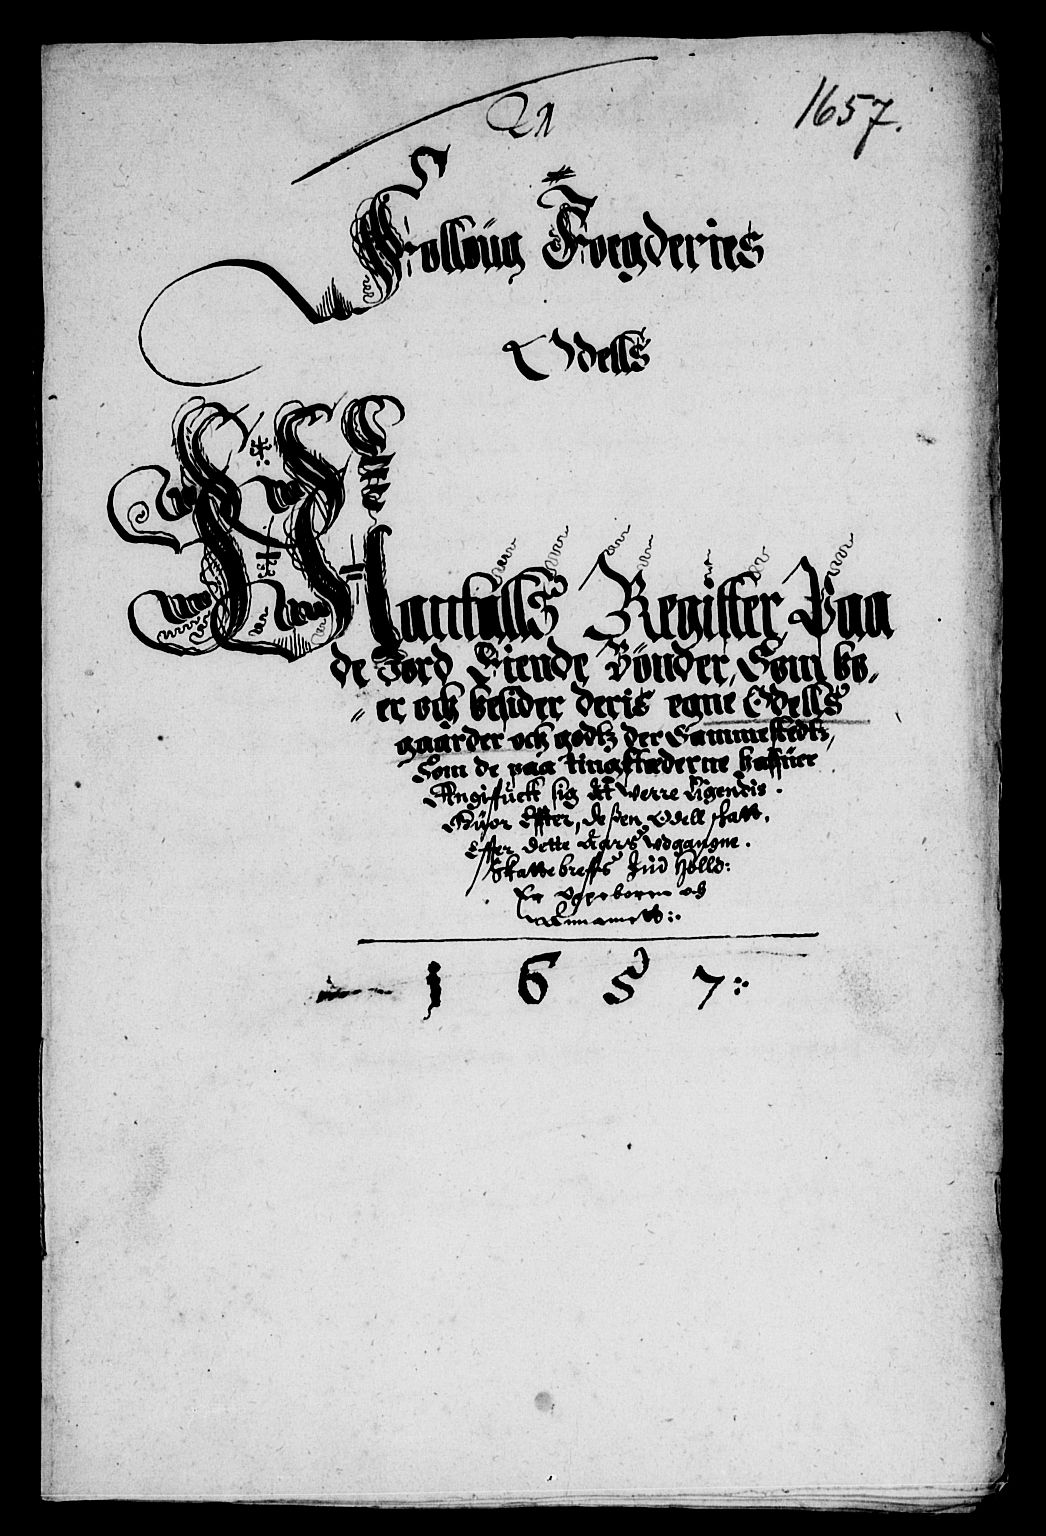 1657.
21
Folloug Foegderies
Odells
Mantalls Register Paa
de Jord Eiende Bönder, Som bo,
er och besider deris egne Odells
gaarder och godtz der Sammestedtz,
Som de paa tingstæderne haffuer
Angiffuett sig att werre Eigendis.
Huor Effter, deßen Odell skatt,
Effter dette Aars Udgangne.
Skattebreffs Ind Holld:
Er Oppeboren och
Annammett:
1657: